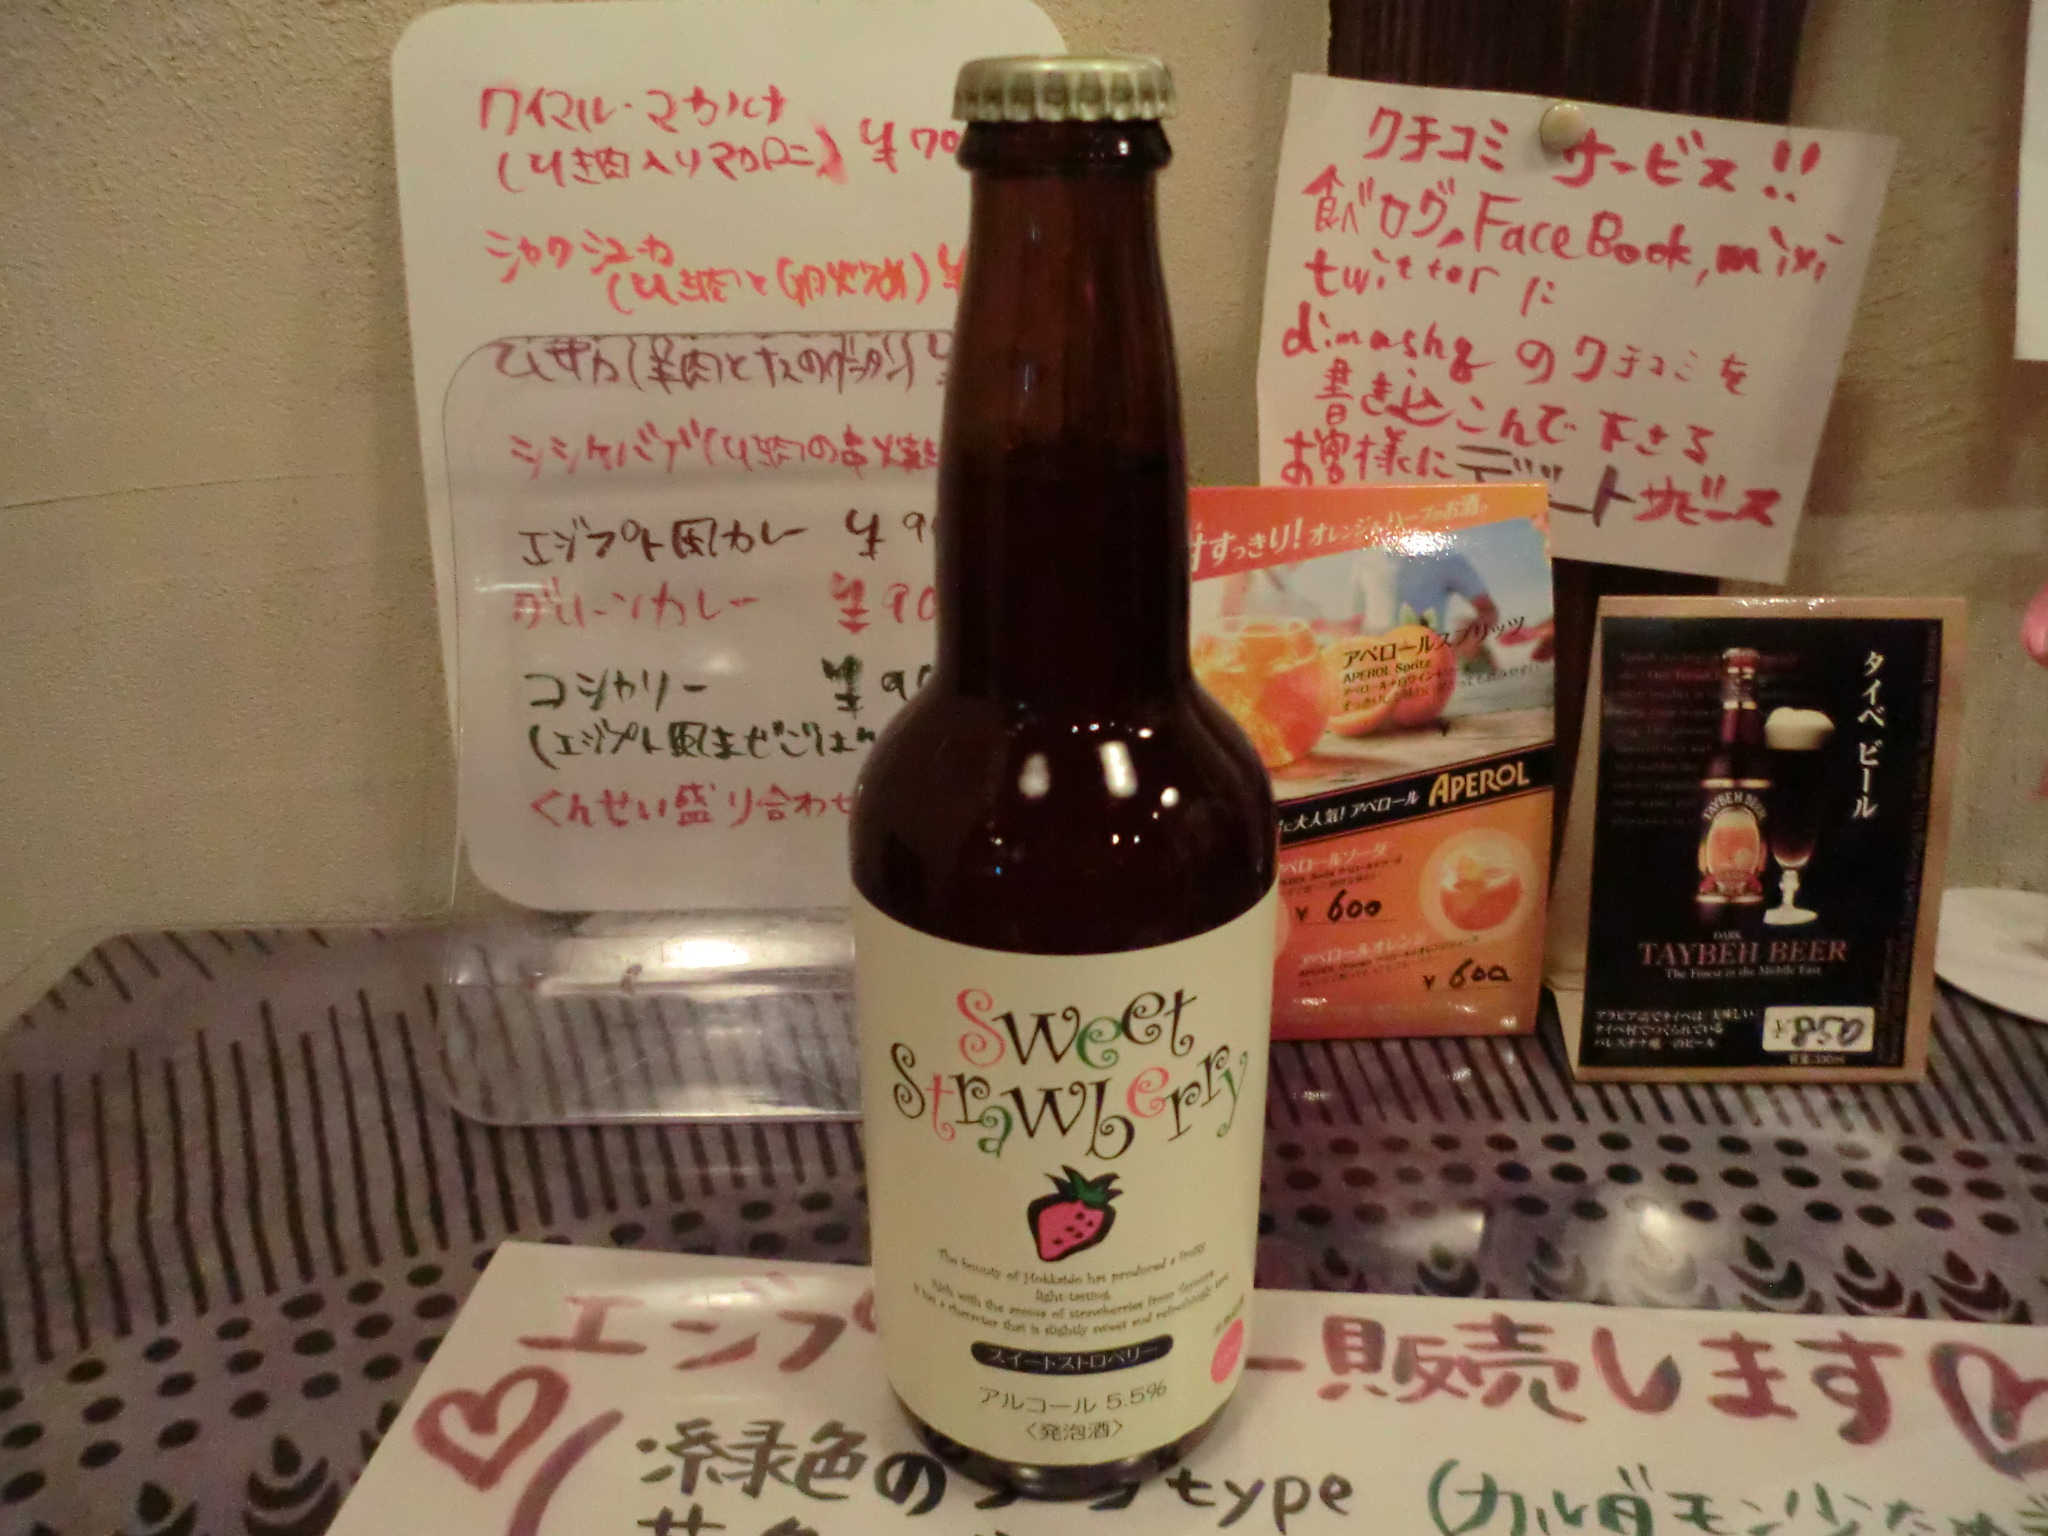 ワイマル・マカルナ
(ひき肉入りマカロニ) ¥70
シャクシューカ
(ひき肉と卵炊き) ¥
ひざか(羊肉とナスのグラタン) ¥
シシケバブ(ひき肉の串焼
エジプト風カレー ¥9
グリーンカレー ¥90
コシャリー ¥90
(エジプト風まぜごはん
くんせい盛り合わせ
クチコミ サービス!!
食べログ, FaceBook, mixi
twitterに
dimashqのクチコミを
書き込こんで下さる
お客様にデザートサービス
すっきり!オレンジ&ハーブのお酒。
アペロールスプリッツ
APEROL Spritz
に大人気!アペロール APEROL
アペロールソーダ
¥ 600
アペロールオレンジ
¥ 600
タイベビール
TAYBEH BEER
DARK
TAYBEH BEER
The Finest in the Middle East
アラビア語でタイベは「美味しい」
タイベ村でつくられている
パレスチナ唯一のビール
¥ 850
容量:330ml
Sweet
Strawberry
The bounty of Hokkaido has produced a fruity
light-tasting.
Rich with the aroma of strawberries from
It has a character that is slightly sweet and refreshingly tart.
スイートストロベリー
アルコール 5.5%
〈発泡酒〉
エジプ ー販売します
緑色の type (カルダモン少ため